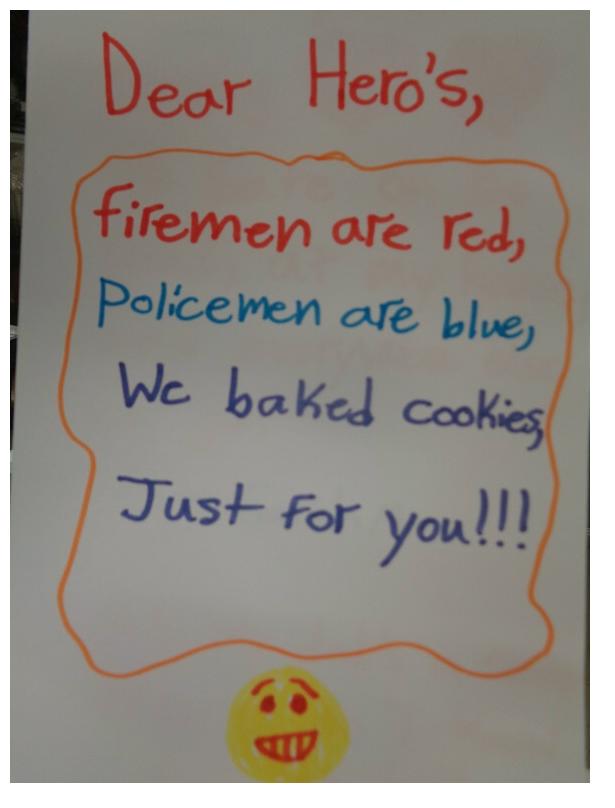 Dear Hero's,
firemen are red,
Policemen are blue,
We baked cookies,
Just for you!!!